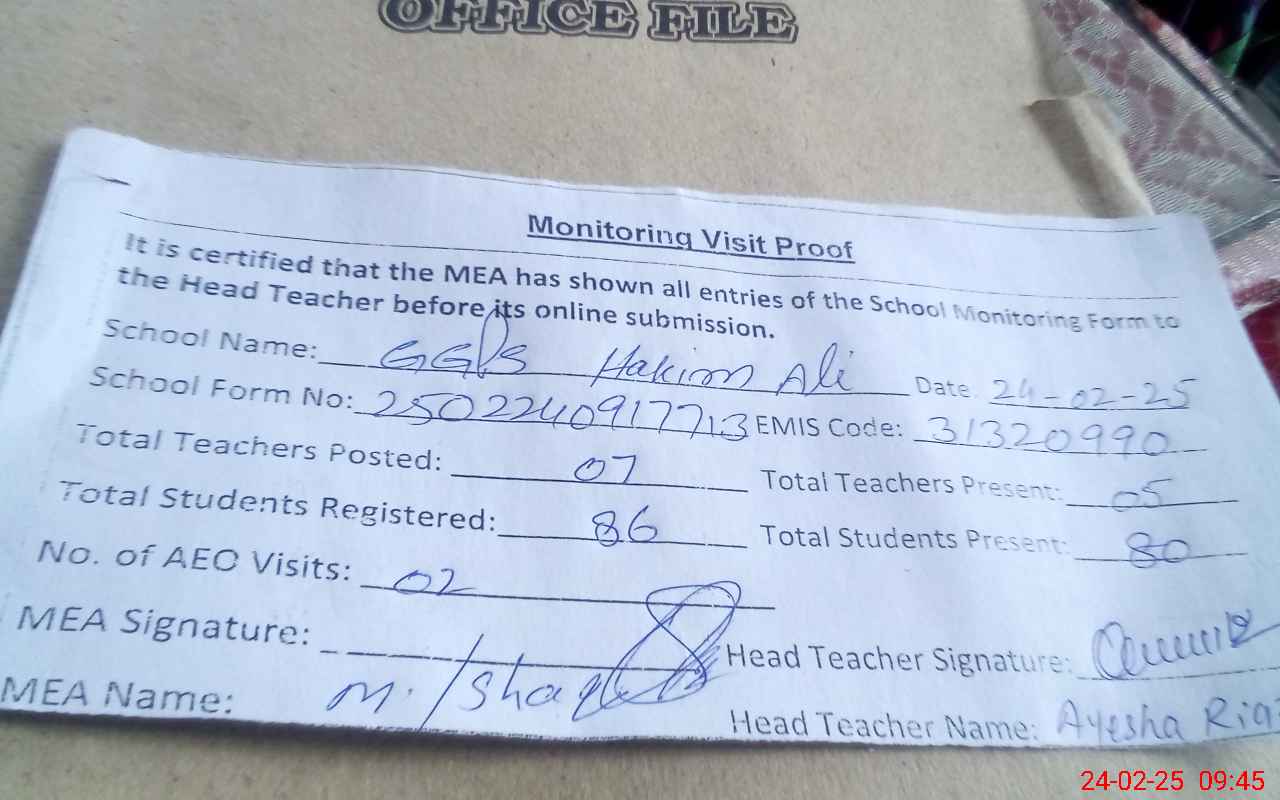 OFFICE FILE
Monitoring Visit Proof
It is certified that the MEA has shown all entries of the School Monitoring Form to
the Head Teacher before its online submission.
School Name: GGPS Hakim Ali Date 24-02-25
School Form No: 2502240917713 EMIS Code: 31320990
Total Teachers Posted: 07 Total Teachers Present: 05
Total Students Registered: 86 Total Students Present: 80
No. of AEO Visits: 02
MEA Signature: Head Teacher Signature:
MEA Name: M. Head Teacher Name: Ayesha
24-02-25 09:45